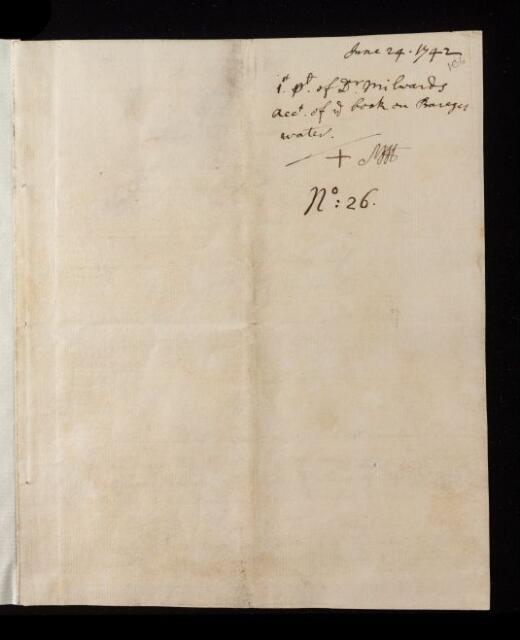 June 24. 1742
106
1st pt. of Dr Milwards
acct. of ye book on Bareges
water.
+
No: 26.